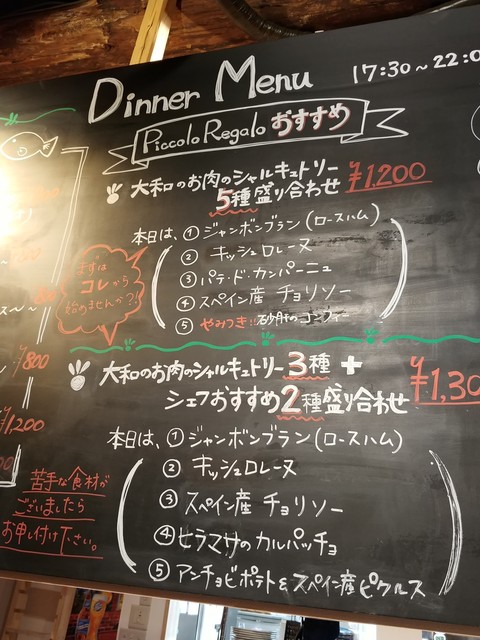 Dinner Menu 17:30~22:0
Piccolo Regalo おすすめ
大和のお肉のシャルキュトリー
5種盛り合わせ ¥1,200
本日は、① ジャンボンブラン(ロースハム)
② キッシュロレーヌ
③ パテ・ド・カンパーニュ
④ スペイン産 チョリソー
⑤ やみつき!! 砂肝のコンフィー
まずは
コレから
始めませんか?!
大和のお肉のシャルキュトリー3種 +
シェフおすすめ2種盛り合わせ
¥1,30
本日は、① ジャンボンブラン(ロースハム)
② キッシュロレーヌ
③ スペイン産 チョリソー
④ ヒラマサのカルパッチョ
⑤ アンチョビポテト&スペイン産ピクルス
¥800
¥1,200
苦手な食材が
ございましたら
お申し付け下さい。